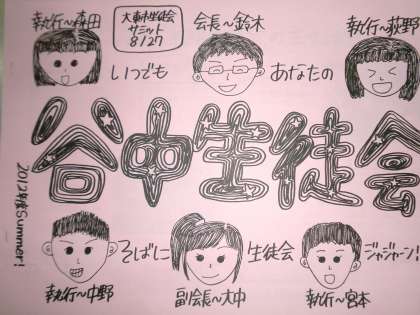 執行～森田
大東市生徒会
サミット
8/27
会長～鈴木
執行～荻野
いつでも
あなたの
谷中生徒会
2012年度Summer!
そばに
生徒会
ジャジャーン!
執行～中野
副会長～大中
執行～宮本